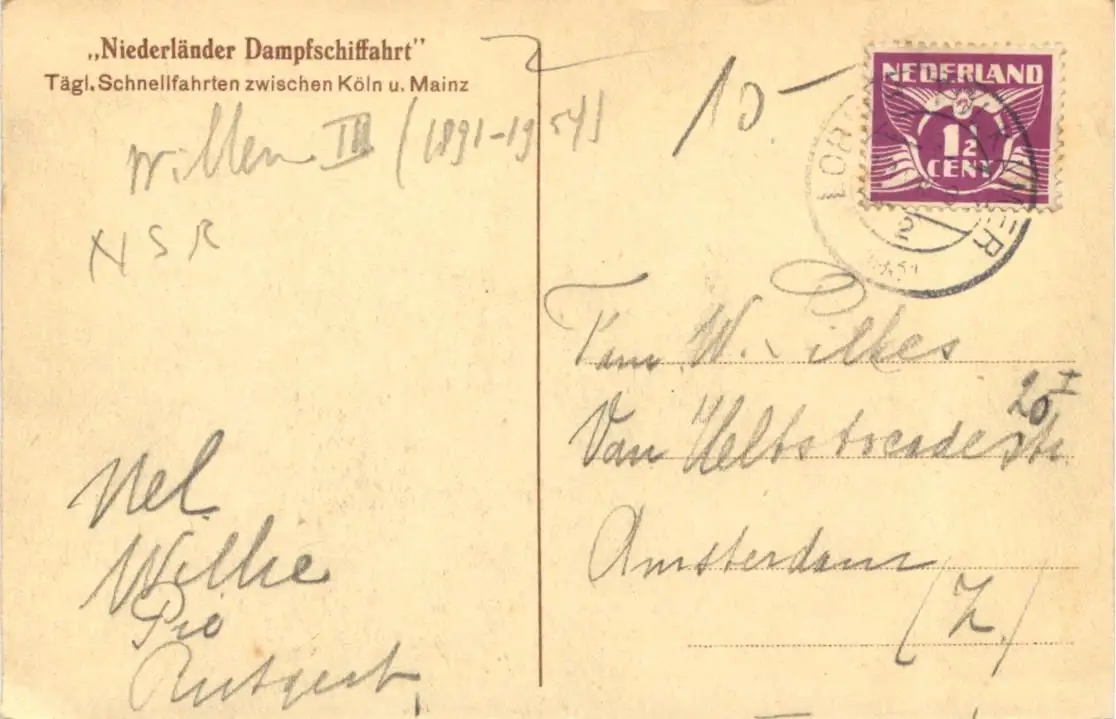 „Niederländer Dampfschiffahrt"
Tägl. Schnellfahrten zwischen Köln u. Mainz
Willem III (1891-1954)
NSR
Nel
Willie
Pio
Rutgert
10.-
NEDERLAND
1½
CENT
Fam W. Pilkes
Van
20 I
Amsterdam
(Z.)